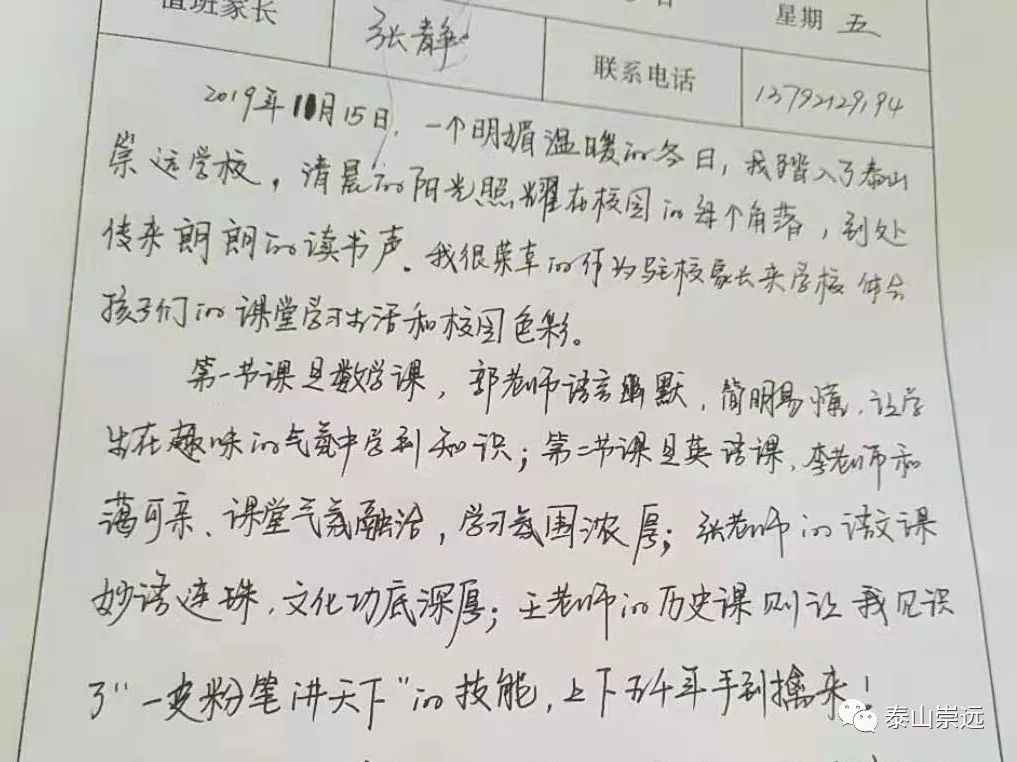 值班家长 张静 日 星期 五
联系电话 13792129194
2019年11月15日，一个明媚温暖的冬日，我踏入了泰山
崇远学校，清晨的阳光照耀在校园的每个角落，到处
传来朗朗的读书声。我很荣幸的作为驻校家长来学校体会
孩子们的课堂学习生活和校园色彩。
第一节课是数学课，郭老师语言幽默，简明易懂，让学
生在趣味的气氛中学到知识；第二节课是英语课，李老师和
蔼可亲、课堂气氛融洽，学习氛围浓厚；张老师的语文课
妙语连珠，文化功底深厚；王老师的历史课则让我见识
了“一支粉笔讲天下”的技能，上下五千年手到擒来！
泰山崇远